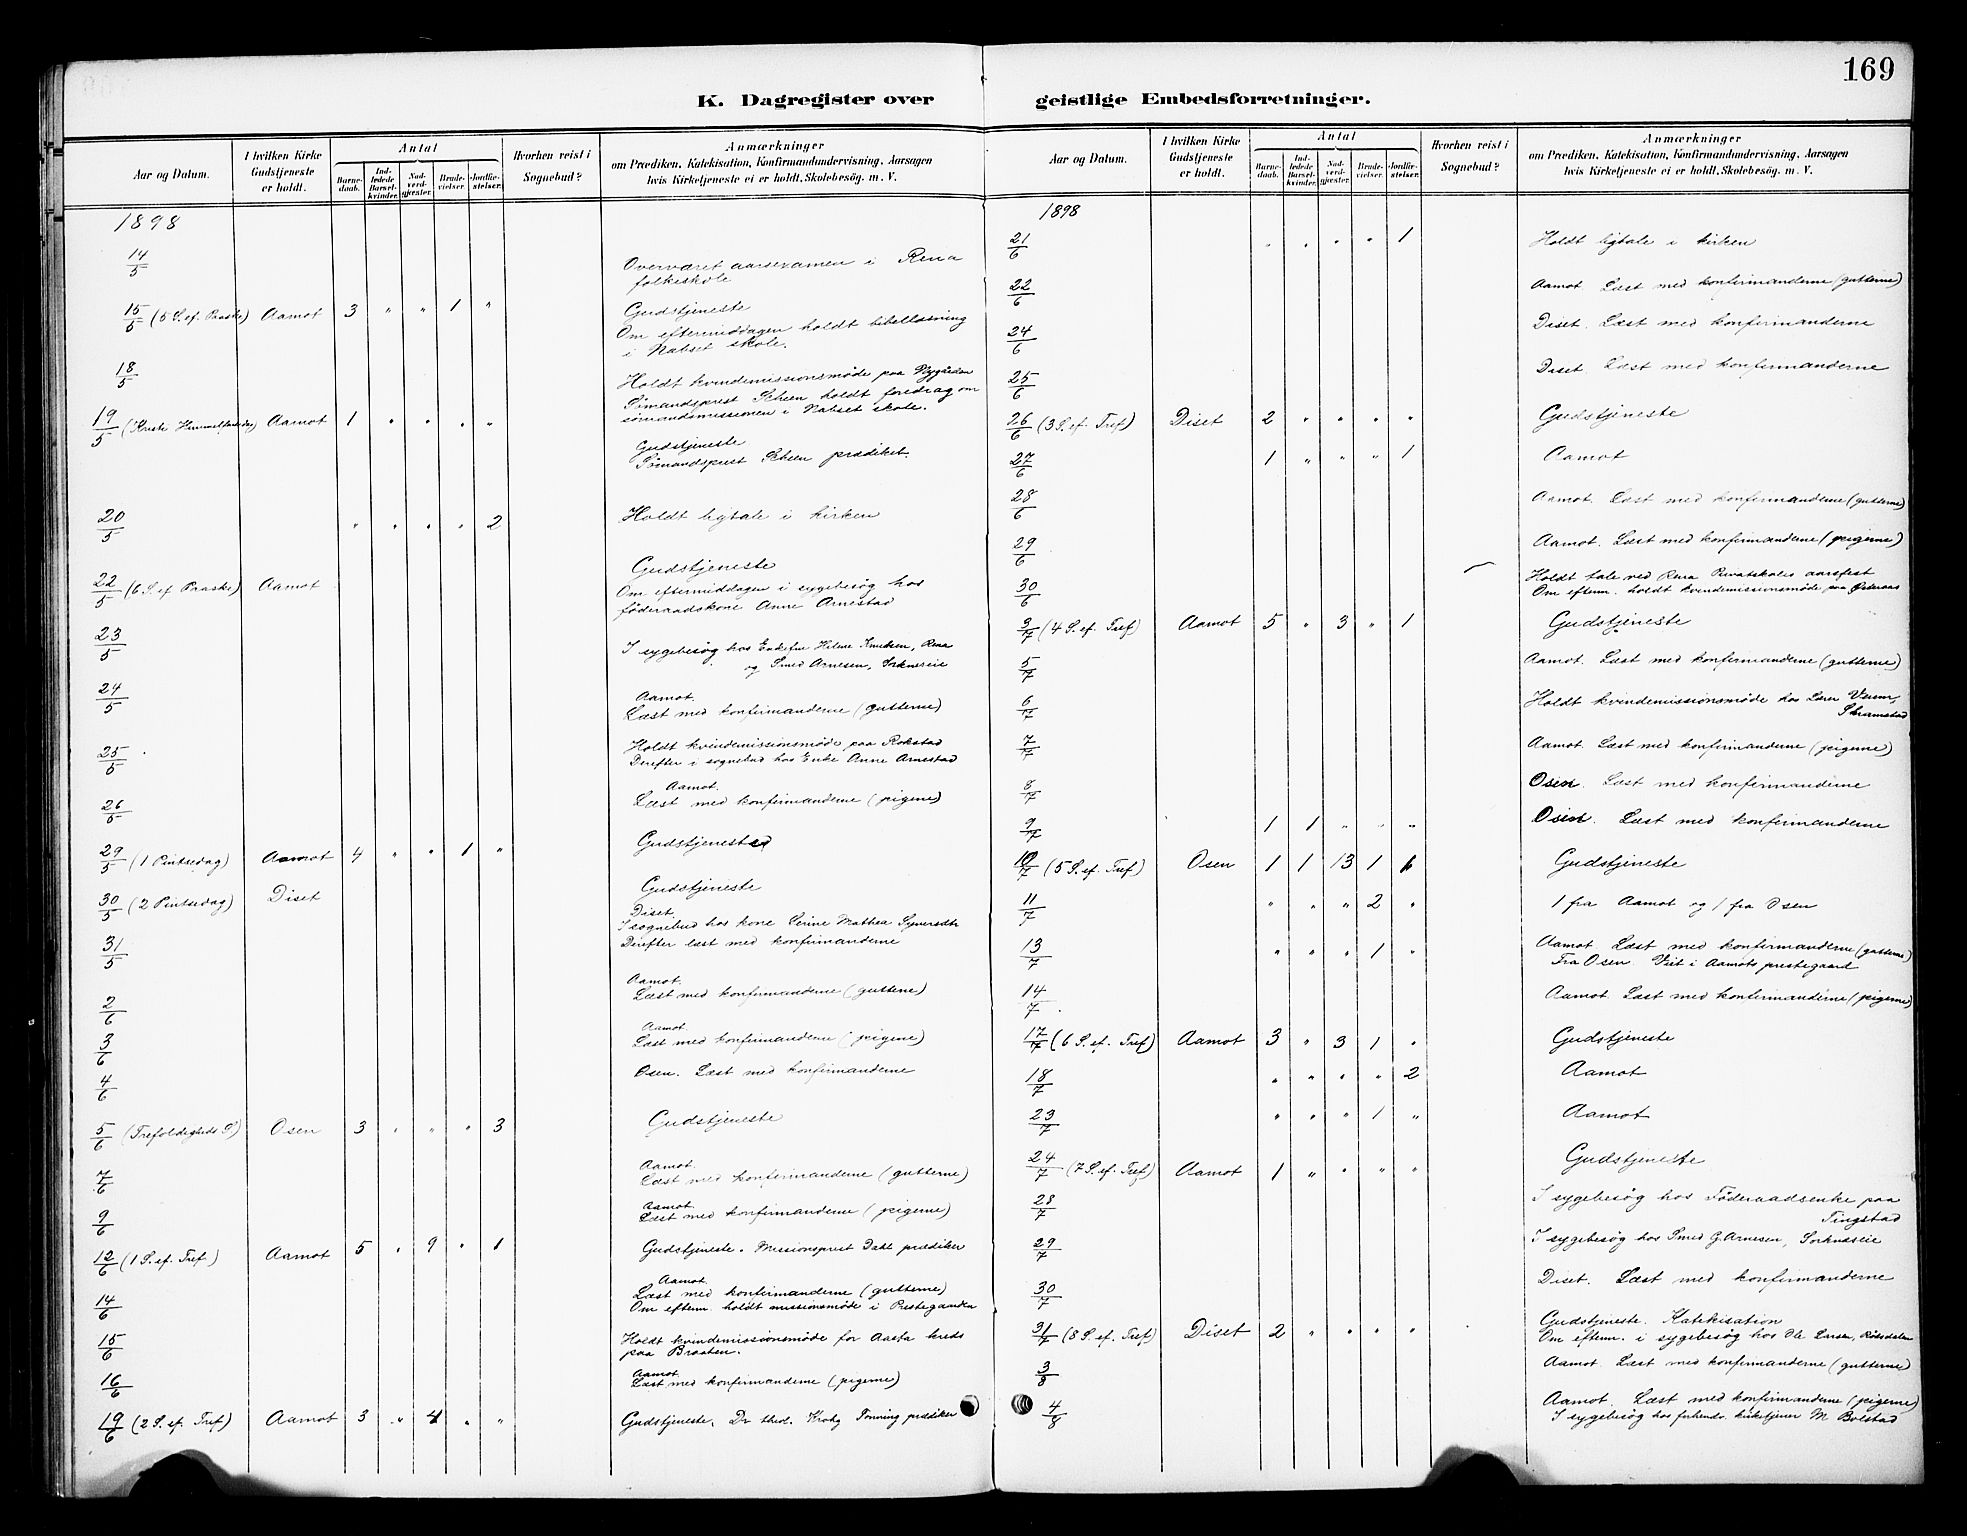 169
K. Dagregister over geistlige Embedsforretninger.
Aar og Datum. | I hvilken Kirke Gudstjeneste er holdt. | Antal | Barnedaab. | Indledede Barselkvinder. | Nadverdgjester. | Brudevielser. | Jordfæstelser. | Hvorhen reist i Sognebud? | Anmærkninger om Prædiken, Katekisation, Konfirmandundervisning, Aarsagen hvis Kirketjeneste ei er holdt, Skolebesøg. m. V.
1898
14/5 Overværet aarsexamen i Rena
folkeskole
15/5 (5 S. ef. Paaske) Aamot 3 " " 1 " Gudstjeneste
Om eftermiddagen holdt bibellæsning
i Nabset skole.
18/5 Holdt kvindemissionsmøde paa Nygården
Sømandsprest Scheen holdt foredrag om
sømandsmissionen i Nabset skole.
19/5 (Kristi Himmelfartsdag) Aamot 1 " " " " Gudstjeneste
Sømandsprest Scheen prædiket.
20/5 " " " " 2 Holdt ligtale i kirken
22/5 (6 S. ef Paaske) Aamot Gudstjeneste
Om eftermiddagen i sygebesøg hos
föderaadskone Anne Arnestad
23/5 I sygebesøg hos Enkefru Helene Knudsen, Rena
og Smed Arnesen, Sorknæseie
24/5 Aamot.
Læst med konfirmanderne (gutterne)
25/5 Holdt kvindemissionsmøde paa Rokstad
Derefter i sognebud hos Enke Anne Arnestad
26/5 Aamot.
Læst med konfirmanderne (pigerne)
29/5 (1 Pintsedag) Aamot 4 " " 1 " Gudstjeneste
30/5 (2 Pintsedag) Diset Gudstjeneste
31/5 Diset
I sognebud hos kone Serine Mathea Syversdtr
Derefter læst med konfirmanderne
2/6 Aamot.
Læst med konfirmanderne (gutterne)
3/6 Aamot.
Læst med konfirmanderne (pigerne)
4/6 Osen. Læst med konfirmanderne
5/6 (Trefoldigheds S.) Osen 3 " " " 3 Gudstjeneste
7/6 Aamot.
Læst med konfirmanderne (gutterne)
9/6 Aamot.
Læst med konfirmanderne (pigerne)
12/6 (1 S. ef. Tref.) Aamot 5 " 9 " 1 Gudstjeneste. Missionsprest Dahl prædiker
14/6 Aamot.
Læst med konfirmanderne (gutterne)
Om efterm. holdt missionsmøde i Prestegaarden
15/6 Holdt kvindemissionsmøde for Aasta kreds
paa Braaten.
16/6 Aamot.
Læst med konfirmanderne (pigerne)
19/6 (2 S. ef. Tref) Aamot 3 " 4 " " Gudstjeneste, Dr theol. Krohg Tonning prædiker
Aar og Datum. | I hvilken Kirke Gudstjeneste er holdt. | Antal | Barnedaab. | Indledede Barselkvinder. | Nadverdgjester. | Brudevielser. | Jordfæstelser. | Hvorhen reist i Sognebud? | Anmærkninger om Prædiken, Katekisation, Konfirmandundervisning, Aarsagen hvis Kirketjeneste ei er holdt, Skolebesøg. m. V.
1898
21/6 " " " " 1 Holdt ligtale i kirken
22/6 Aamot. Læst med konfirmanderne (gutterne)
24/6 Diset. Læst med konfirmanderne
25/6 Diset. Læst med konfirmanderne
26/6 (3 S. ef. Tref) Diset 2 " " " " Gudstjeneste
27/6 1 " " " 1 Aamot
28/6 Aamot. Læst med konfirmanderne (gutterne)
29/6 Aamot. Læst med konfirmanderne (pigerne)
30/6 Holdt tale ved Rena Privatskoles aarsfest
Om efterm. holdt kvindemissionsmøde paa
3/7 (4 S. ef. Tref) Aamot 5 " 3 " 1 Gudstjeneste
5/7 Aamot. Læst med konfirmanderne (gutterne)
6/7 Holdt kvindemissionsmøde hos
Skramstad
7/7 Aamot. Læst med konfirmanderne (pigerne)
8/7 Osen. Læst med konfirmanderne
9/7 1 1 " " " Osen. Læst med konfirmanderne
10/7 (5 S. ef. Tref) Osen 1 1 13 1 Gudstjeneste
11/7 " " " 2 " 1 fra Aamot og 1 fra Osen
13/7 " " " 1 " Aamot. Læst med konfirmanderne (gutterne)
Fra Osen. Viet i Aamots prestegaard
14/7 Aamot. Læst med konfirmanderne (pigerne)
17/7 (6 S. ef. Tref) Aamot 3 " 3 1 " Gudstjeneste
18/7 " " " " 2 Aamot
23/7 " " " 1 " Aamot
24/7 (7 S. ef. Tref) Aamot 1 " " " " Gudstjeneste
28/7 I sygebesøg hos Föderaadsenke paa
Tingstad
29/7 I sygebesøg hos Smed G. Arnesen, Sorknæseie
30/7 Diset. Læst med konfirmanderne
31/7 (8 S. ef. Tref) Diset 2 " " " " Gudstjeneste. Katekisation
Om efterm. i sygebesøg hos Ole
3/8 Aamot. Læst med konfirmanderne (gutterne)
4/8 Aamot. Læst med konfirmanderne (pigerne)
I sygebesøg hos forhenv. kirketjener M Bolstad